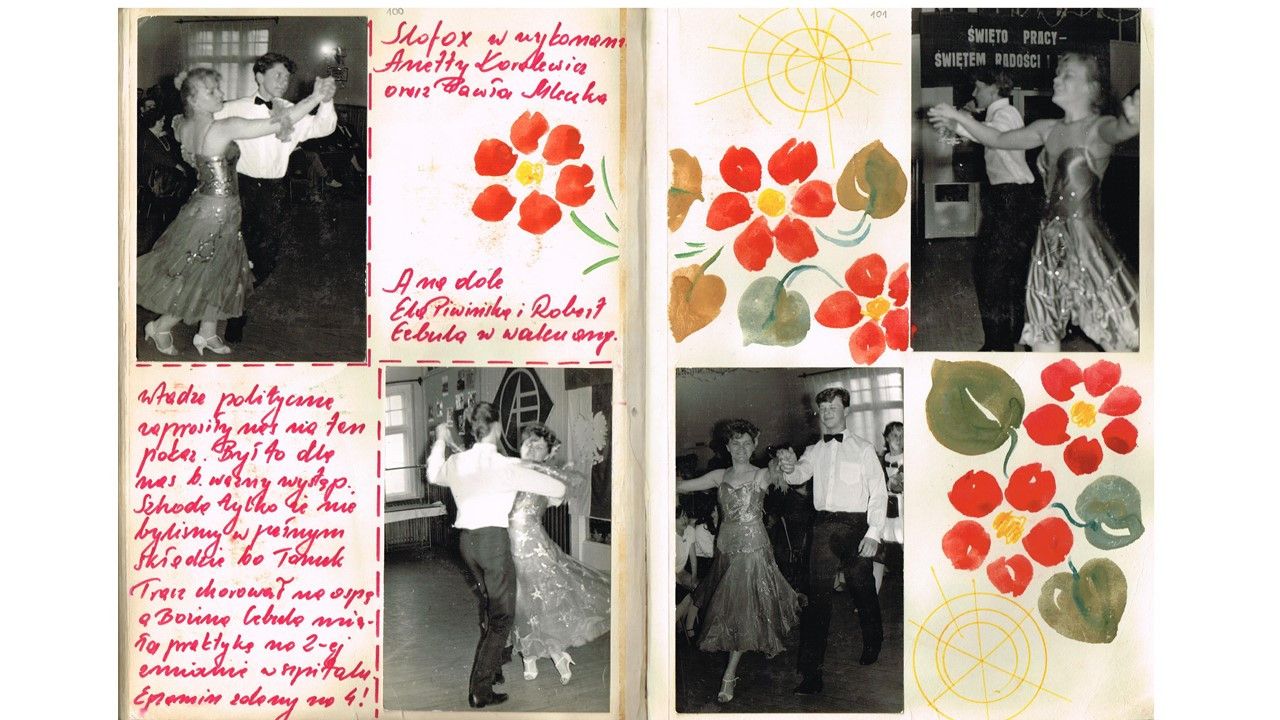 100
Slofox w wykonaniu
Anetty Koralewicz
oraz Pawła Mleczka
A na dole
Ela Piwińska i Robert
Cebula w walcu ang.
Władze polityczne
zaprosiły nas na ten
pokaz. Był to dla
nas b. ważny występ.
Szkoda tylko że nie
byliśmy w pełnym
składzie bo Tomek
Tracz chorował na ospę
a Bożina Cebula mia-
ła praktykę na 2-ej
zmianie w szpitalu.
Egzamin zdany na 4!
101
ŚWIĘTO PRACY-
ŚWIĘTEM RADOŚCI